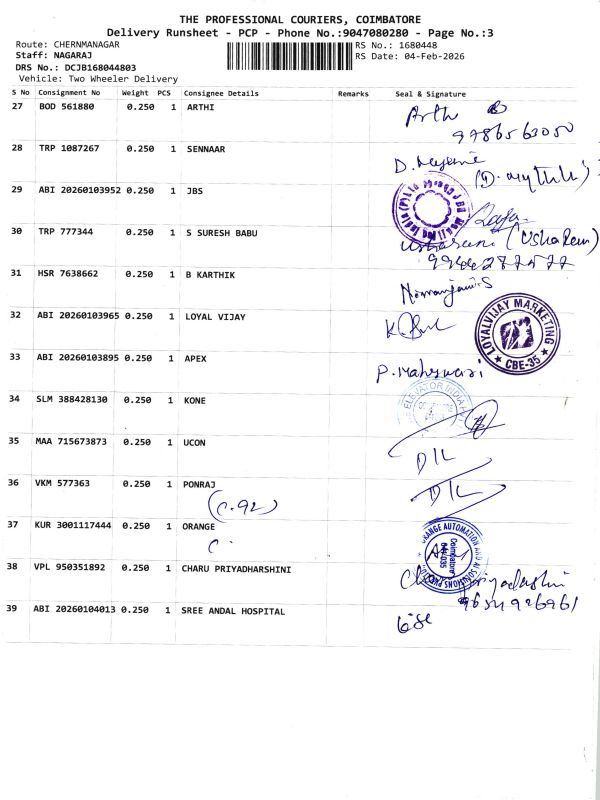 THE PROFESSIONAL COURIERS, COIMBATORE
Delivery Runsheet - PCP - Phone No.:9047080280 - Page No.:3
Route: CHERNMANAGAR
RS No.: 1680448
Staff: NAGARAJ
RS Date: 04-Feb-2026
DRS No.: DCJB168044803
Vehicle: Two Wheeler Delivery
S No Consignment No Weight PCS Consignee Details Remarks Seal & Signature
27 BOD 561880 0.250 1 ARTHI
28 TRP 1087267 0.250 1 SENNAAR
29 ABI 20260103952 0.250 1 JBS
30 TRP 777344 0.250 1 S SURESH BABU
31 HSR 7638662 0.250 1 B KARTHIK
32 ABI 20260103965 0.250 1 LOYAL VIJAY
LOYALVIJAY MARKETING
CBE-35
33 ABI 20260103895 0.250 1 APEX
P. Maheswari
34 SLM 388428130 0.250 1 KONE
ELEVATOR INDIA
35 MAA 715673873 0.250 1 UCON
D/L
36 VKM 577363 0.250 1 PONRAJ
D/L
37 KUR 3001117444 0.250 1 ORANGE
38 VPL 950351892 0.250 1 CHARU PRIYADHARSHINI
39 ABI 20260104013 0.250 1 SREE ANDAL HOSPITAL